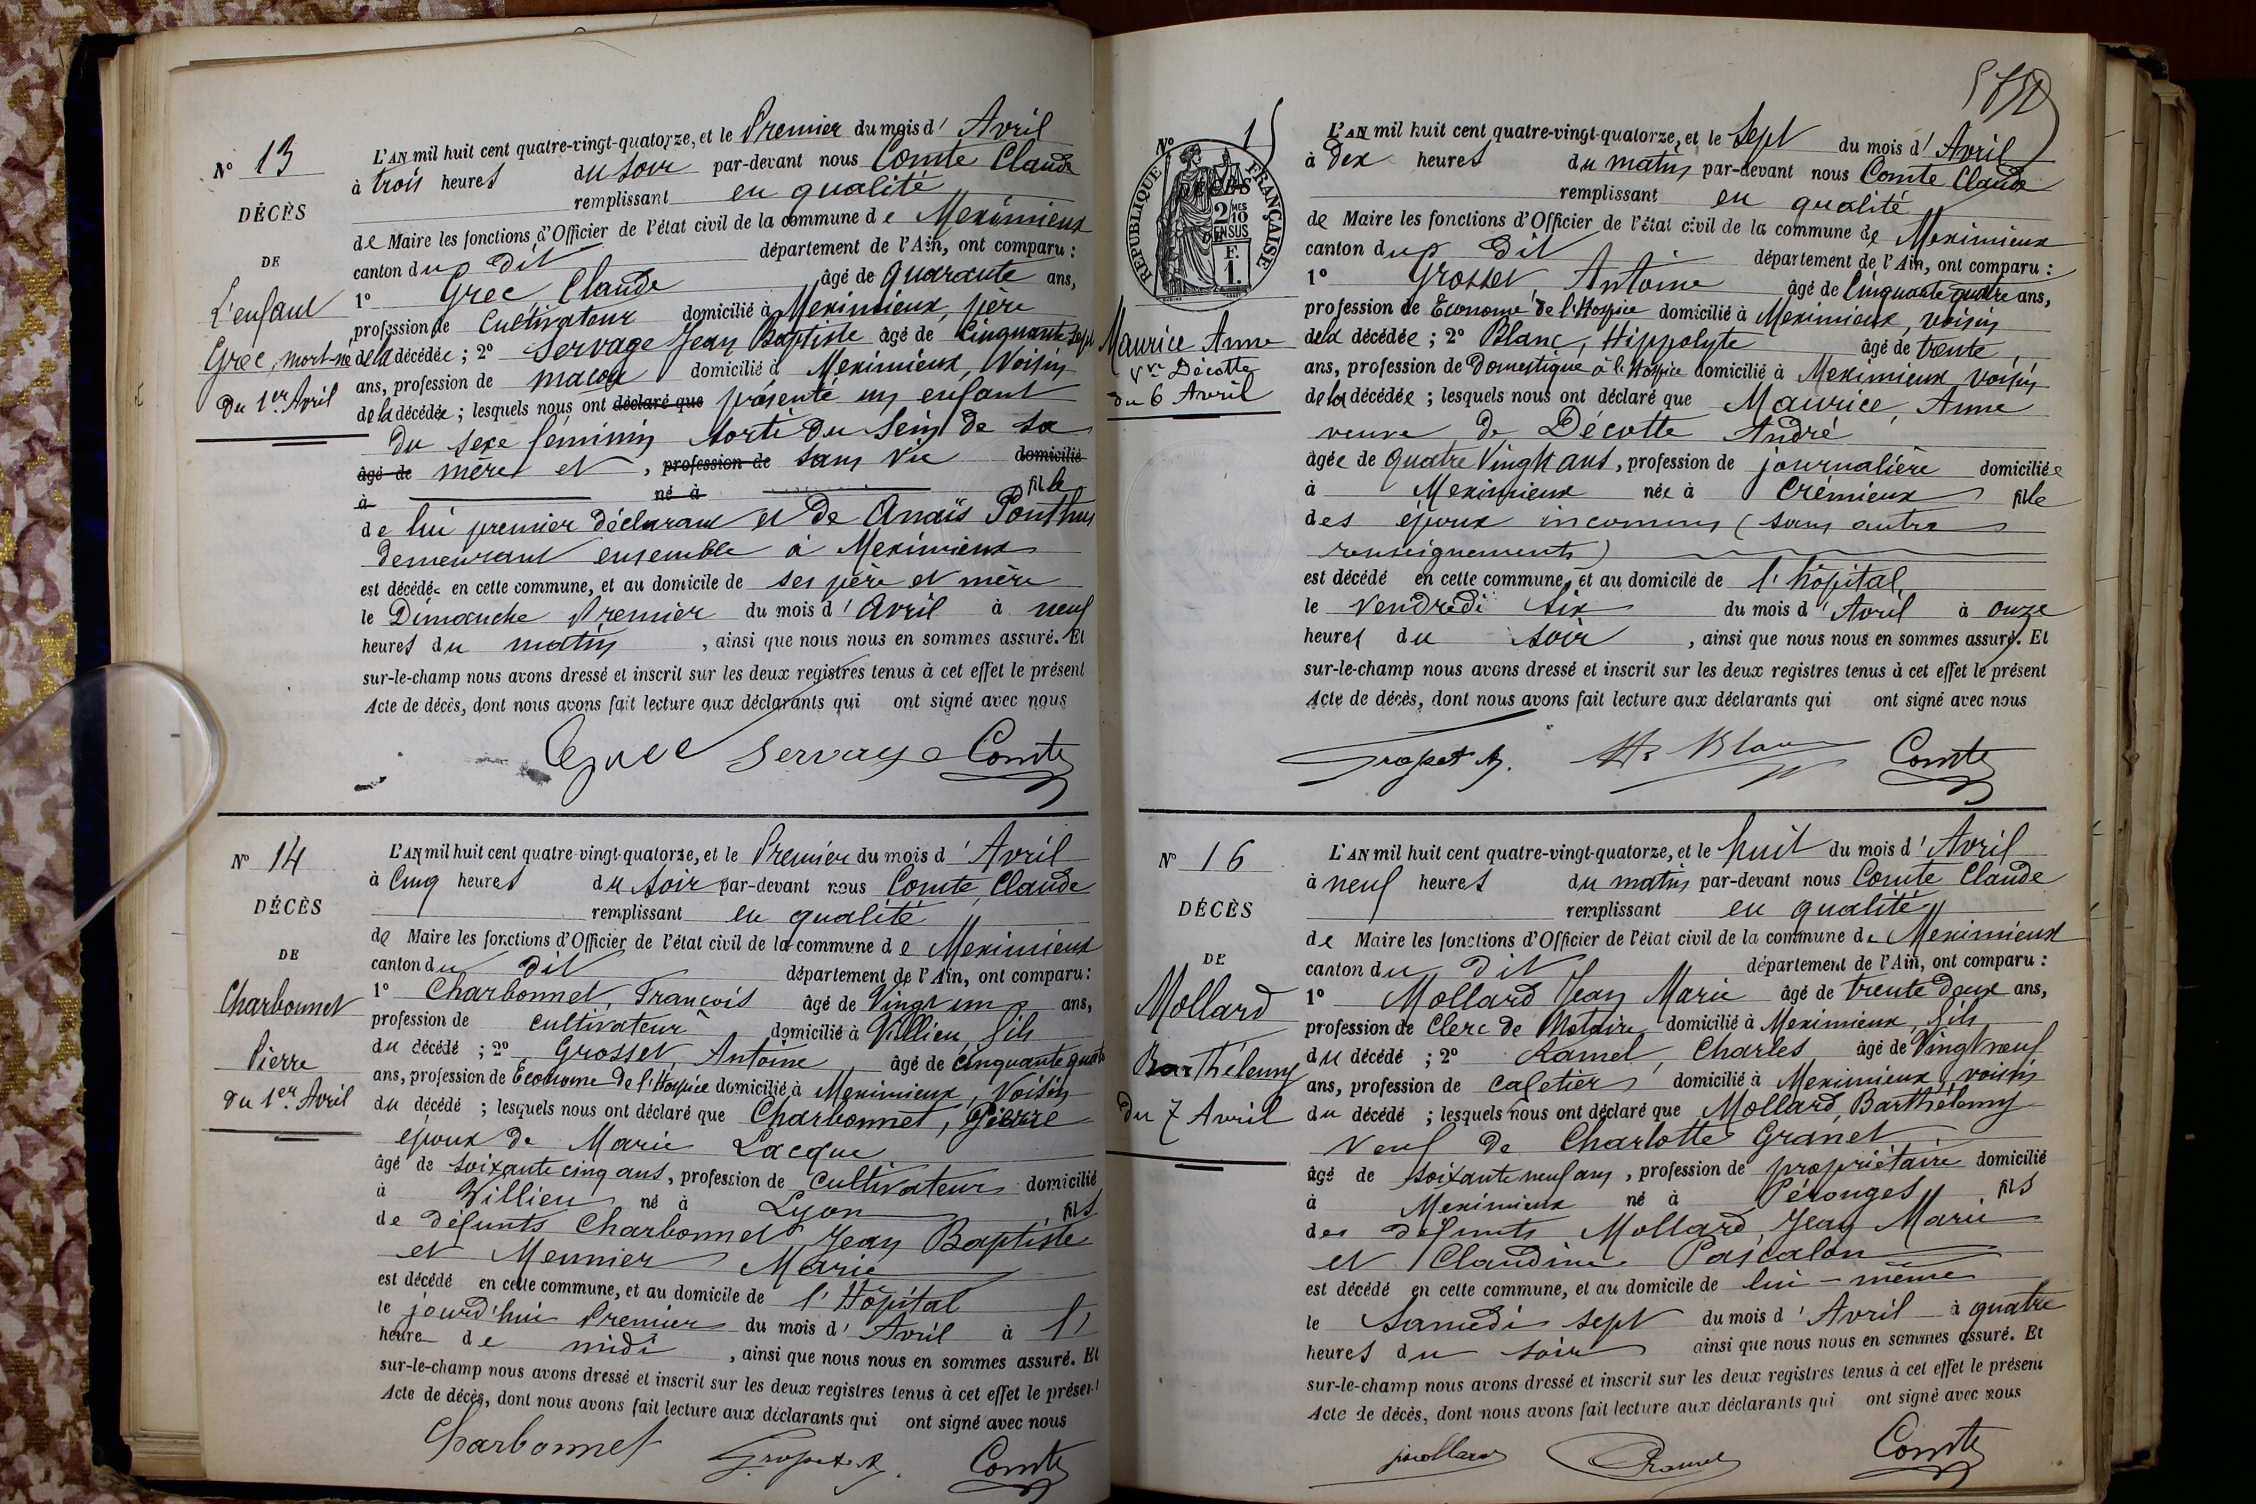 N° 13
DÉCÈS
DE
L'enfant
Grec, mort-né
Du 1er Avril
L'AN mil huit cent quatre-vingt-quatorze, et le Premier du mois d'Avril
à trois heures du soir par-devant nous Comte Claude
remplissant en qualité
de Maire les fonctions d'Officier de l'état civil de la commune de Meximieux
canton du dit département de l'Ain, ont comparu :
1° Grec Claude âgé de quarante ans,
profession de Cultivateur domicilié à Meximieux, père
de la décédée ; 2° Servage Jean Baptiste âgé de Cinquante sept
ans, profession de maçon domicilié à Meximieux, Voisin
de la décédée ; lesquels nous ont déclaré que présenté un enfant
du sexe féminin sorti du sein de sa
âgé de mère et , profession de sans vie domicilié
à né à fille
de lui premier déclarant et de Anaïs Ponthus
demeurant ensemble à Meximieux
est décédée en cette commune, et au domicile de ses père et mère
le Dimanche Premier du mois d'Avril à neuf
heures du matin , ainsi que nous nous en sommes assuré. Et
sur-le-champ nous avons dressé et inscrit sur les deux registres tenus à cet effet le présent
Acte de décès, dont nous avons fait lecture aux déclarants qui ont signé avec nous
Grec Servage Comte
N° 14
DÉCÈS
DE
Charbonnet
Pierre
du 1er Avril
L'AN mil huit cent quatre-vingt-quatorze, et le Premier du mois d'Avril
à Cinq heures du soir par-devant nous Comte Claude
remplissant en qualité
de Maire les fonctions d'Officier de l'état civil de la commune de Meximieux
canton du dit département de l'Ain, ont comparu :
1° Charbonnet, François âgé de Vingt un ans,
profession de cultivateur domicilié à Villieu, fils
du décédé ; 2° Grosset, Antoine âgé de cinquante quatre
ans, profession de Économe de l'Hospice domicilié à Meximieux, Voisin
du décédé ; lesquels nous ont déclaré que Charbonnet, Pierre
époux de Marie Lacque
âgé de soixante cinq ans, profession de cultivateur domicilié
à Villieu né à Lyon fils
de défunts Charbonnet Jean Baptiste
et Meunier Marie
est décédé en cette commune, et au domicile de l'Hôpital
le jourd'hui Premier du mois d'Avril à l'
heure de midi , ainsi que nous nous en sommes assuré. Et
sur-le-champ nous avons dressé et inscrit sur les deux registres tenus à cet effet le présent
Acte de décès, dont nous avons fait lecture aux déclarants qui ont signé avec nous
Charbonnet Grosset A. Comte
N° 15
RÉPUBLIQUE FRANÇAISE
2/10 MES
EN SUS
F.
1.
Maurice Anne
Vve Décotte
du 6 Avril
L'AN mil huit cent quatre-vingt-quatorze, et le Sept du mois d'Avril
à dix heures du matin par-devant nous Comte Claude
remplissant en qualité
de Maire les fonctions d'Officier de l'état civil de la commune de Meximieux
canton du dit département de l'Ain, ont comparu :
1° Grosset, Antoine âgé de Cinquante quatre ans,
profession de Econome de l'Hospice domicilié à Meximieux, voisin
de la décédée ; 2° Blanc, Hippolyte âgé de trente
ans, profession de Domestique à l'Hospice domicilié à Meximieux, voisin
de la décédée ; lesquels nous ont déclaré que Maurice, Anne
veuve de Décotte André
âgée de quatre Vingt ans, profession de journalière domiciliée
à Meximieux née à Crémieux fille
des époux inconnus (sans autre
renseignements)
est décédé en cette commune, et au domicile de l'hôpital,
le vendredi six du mois d'Avril à onze
heures du soir , ainsi que nous nous en sommes assuré. Et
sur-le-champ nous avons dressé et inscrit sur les deux registres tenus à cet effet le présent
Acte de décès, dont nous avons fait lecture aux déclarants qui ont signé avec nous
Grosset A. Hte Blanc Comte
N° 16
DÉCÈS
DE
Mollard
Barthélemy
du 7 Avril
L'AN mil huit cent quatre-vingt-quatorze, et le huit du mois d'Avril
à neuf heures du matin par-devant nous Comte Claude
remplissant en qualité
de Maire les fonctions d'Officier de l'état civil de la commune de Meximieux
canton du dit département de l'Ain, ont comparu :
1° Mollard Jean Marie âgé de trente deux ans,
profession de Clerc de Notaire domicilié à Meximieux, fils
du décédé ; 2° Ramel, Charles âgé de Vingt neuf
ans, profession de cafetier domicilié à Meximieux, voisin
du décédé ; lesquels nous ont déclaré que Mollard, Barthélemy
Veuf de Charlotte Granet
âgé de soixante neuf ans, profession de propriétaire domicilié
à Meximieux né à Pérouges fils
des défunts Mollard, Jean Marie
et Claudine Pascalon
est décédé en cette commune, et au domicile de lui-même
le Samedi sept du mois d'Avril à quatre
heures du soir ainsi que nous nous en sommes assuré. Et
sur-le-champ nous avons dressé et inscrit sur les deux registres tenus à cet effet le présent
Acte de décès, dont nous avons fait lecture aux déclarants qui ont signé avec nous
Mollard Ramel Comte